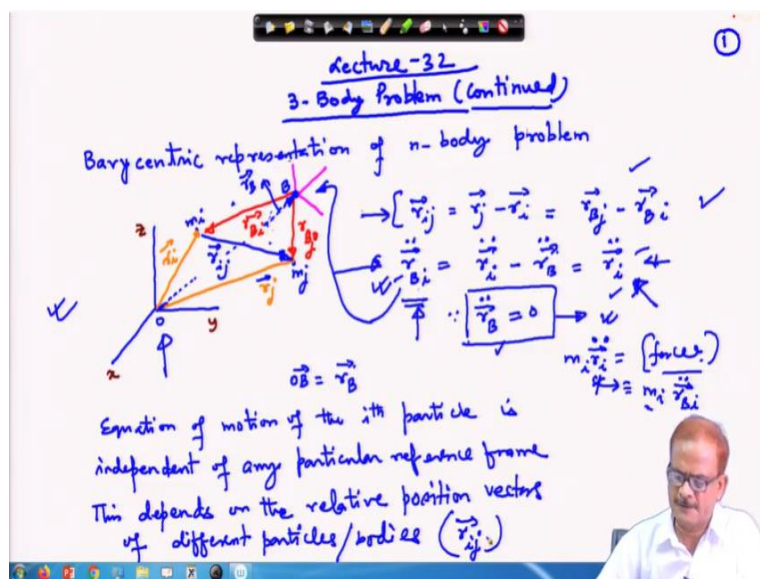 ①
Lecture-32
3-Body Problem (Continued)
Barycentric representation of n-body problem
z
m_i
r⃗_B
B
r⃗_i
r⃗_ij
r⃗_Bi
r⃗_Bj
m_j
r⃗_j
O
y
x
→[ r⃗_ij = r⃗_j - r⃗_i = r⃗_Bj - r⃗_Bi ✓
r⃗̈_Bi = r⃗̈_i - r⃗̈_B = r⃗̈_i
∵ r⃗̈_B = 0
m_i r⃗̈_i = [forces]
≡ m_i r⃗̈_Bi
OB⃗ = r⃗_B
Equation of motion of the ith particle is
independent of any particular reference frame
This depends on the relative position vectors
of different particles/bodies (r⃗_ij)